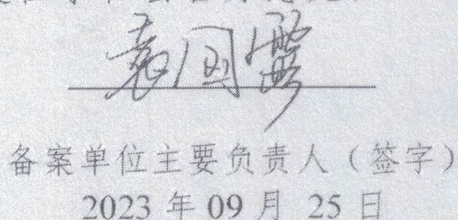 袁国霞
备案单位主要负责人（签字）
2023 年 09 月 25 日